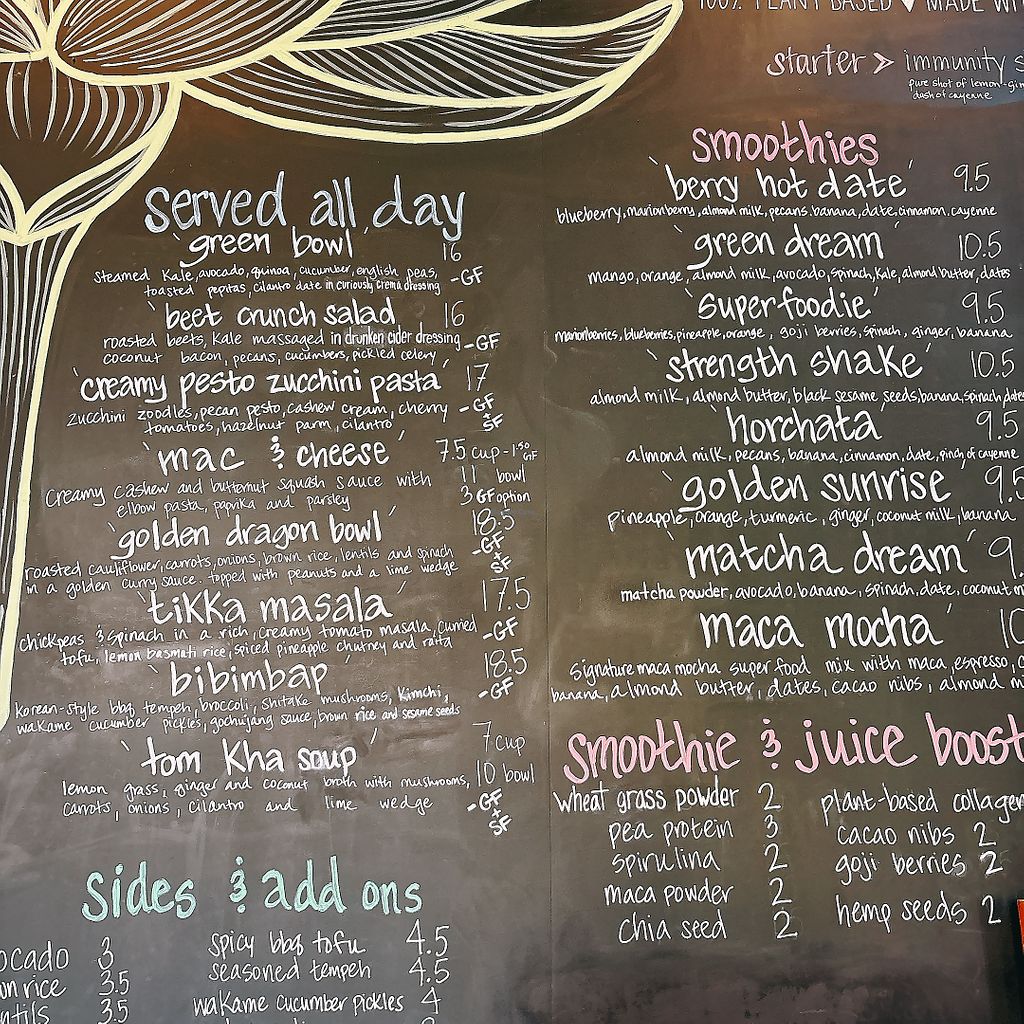 100% PLANT BASED ♥ MADE
starter > immunity
pure shot of lemon-
dash of cayenne
served all day
'green bowl' 16
steamed kale, avocado, quinoa, cucumber, english peas, -GF
toasted pepitas, cilantro date in curiously crema dressing
'beet crunch salad' 16
roasted beets, kale massaged in drunken cider dressing -GF
coconut bacon, pecans, cucumbers, pickled celery
'creamy pesto zucchini pasta' 17
zucchini zoodles, pecan pesto, cashew cream, cherry -GF
tomatoes, hazelnut parm, cilantro + SF
'mac & cheese' 7.5 cup -1.50 GF
creamy cashew and butternut squash sauce with 11 bowl
elbow pasta, paprika and parsley 3 GF option
'golden dragon bowl' 18.5
roasted cauliflower, carrots, onions, brown rice, lentils and spinach -GF
in a golden curry sauce. topped with peanuts and a lime wedge + SF
'tikka masala' 17.5
chickpeas & spinach in a rich, creamy tomato masala, -GF
tofu, lemon basmati rice, spiced pineapple chutney and raita
'bibimbap' 18.5
korean-style bbq tempeh, broccoli, shitake mushrooms, kimchi, -GF
wakame cucumber pickles, gochujang sauce, brown rice and sesame seeds
'tom kha soup' 7 cup
lemon grass, ginger and coconut broth with mushrooms, 10 bowl
carrots, onions, cilantro and lime wedge -GF + SF
sides & add ons
3
3.5
3.5
spicy bbq tofu 4.5
seasoned tempeh 4.5
wakame cucumber pickles 4
smoothies
'berry hot date' 9.5
blueberry, marionberry, almond milk, pecans, banana, date, cinnamon, cayenne
'green dream' 10.5
mango, orange, almond milk, avocado, spinach, kale, almond butter, dates
'superfoodie' 9.5
marionberries, blueberries, pineapple, orange, goji berries, spinach, ginger, banana
'strength shake' 10.5
almond milk, almond butter, black sesame seeds, banana, spinach, dates
'horchata' 9.5
almond milk, pecans, banana, cinnamon, date, pinch of cayenne
'golden sunrise' 9.5
pineapple, orange, turmeric, ginger, coconut milk, banana
'matcha dream' 9.
matcha powder, avocado, banana, spinach, date, coconut m
'maca mocha' 10
signature maca mocha super food mix with maca, espresso,
banana, almond butter, dates, cacao nibs, almond m
smoothie & juice boost
wheat grass powder 2
pea protein 3
spirulina 2
maca powder 2
chia seed 2
plant-based collagen
cacao nibs 2
goji berries 2
hemp seeds 2